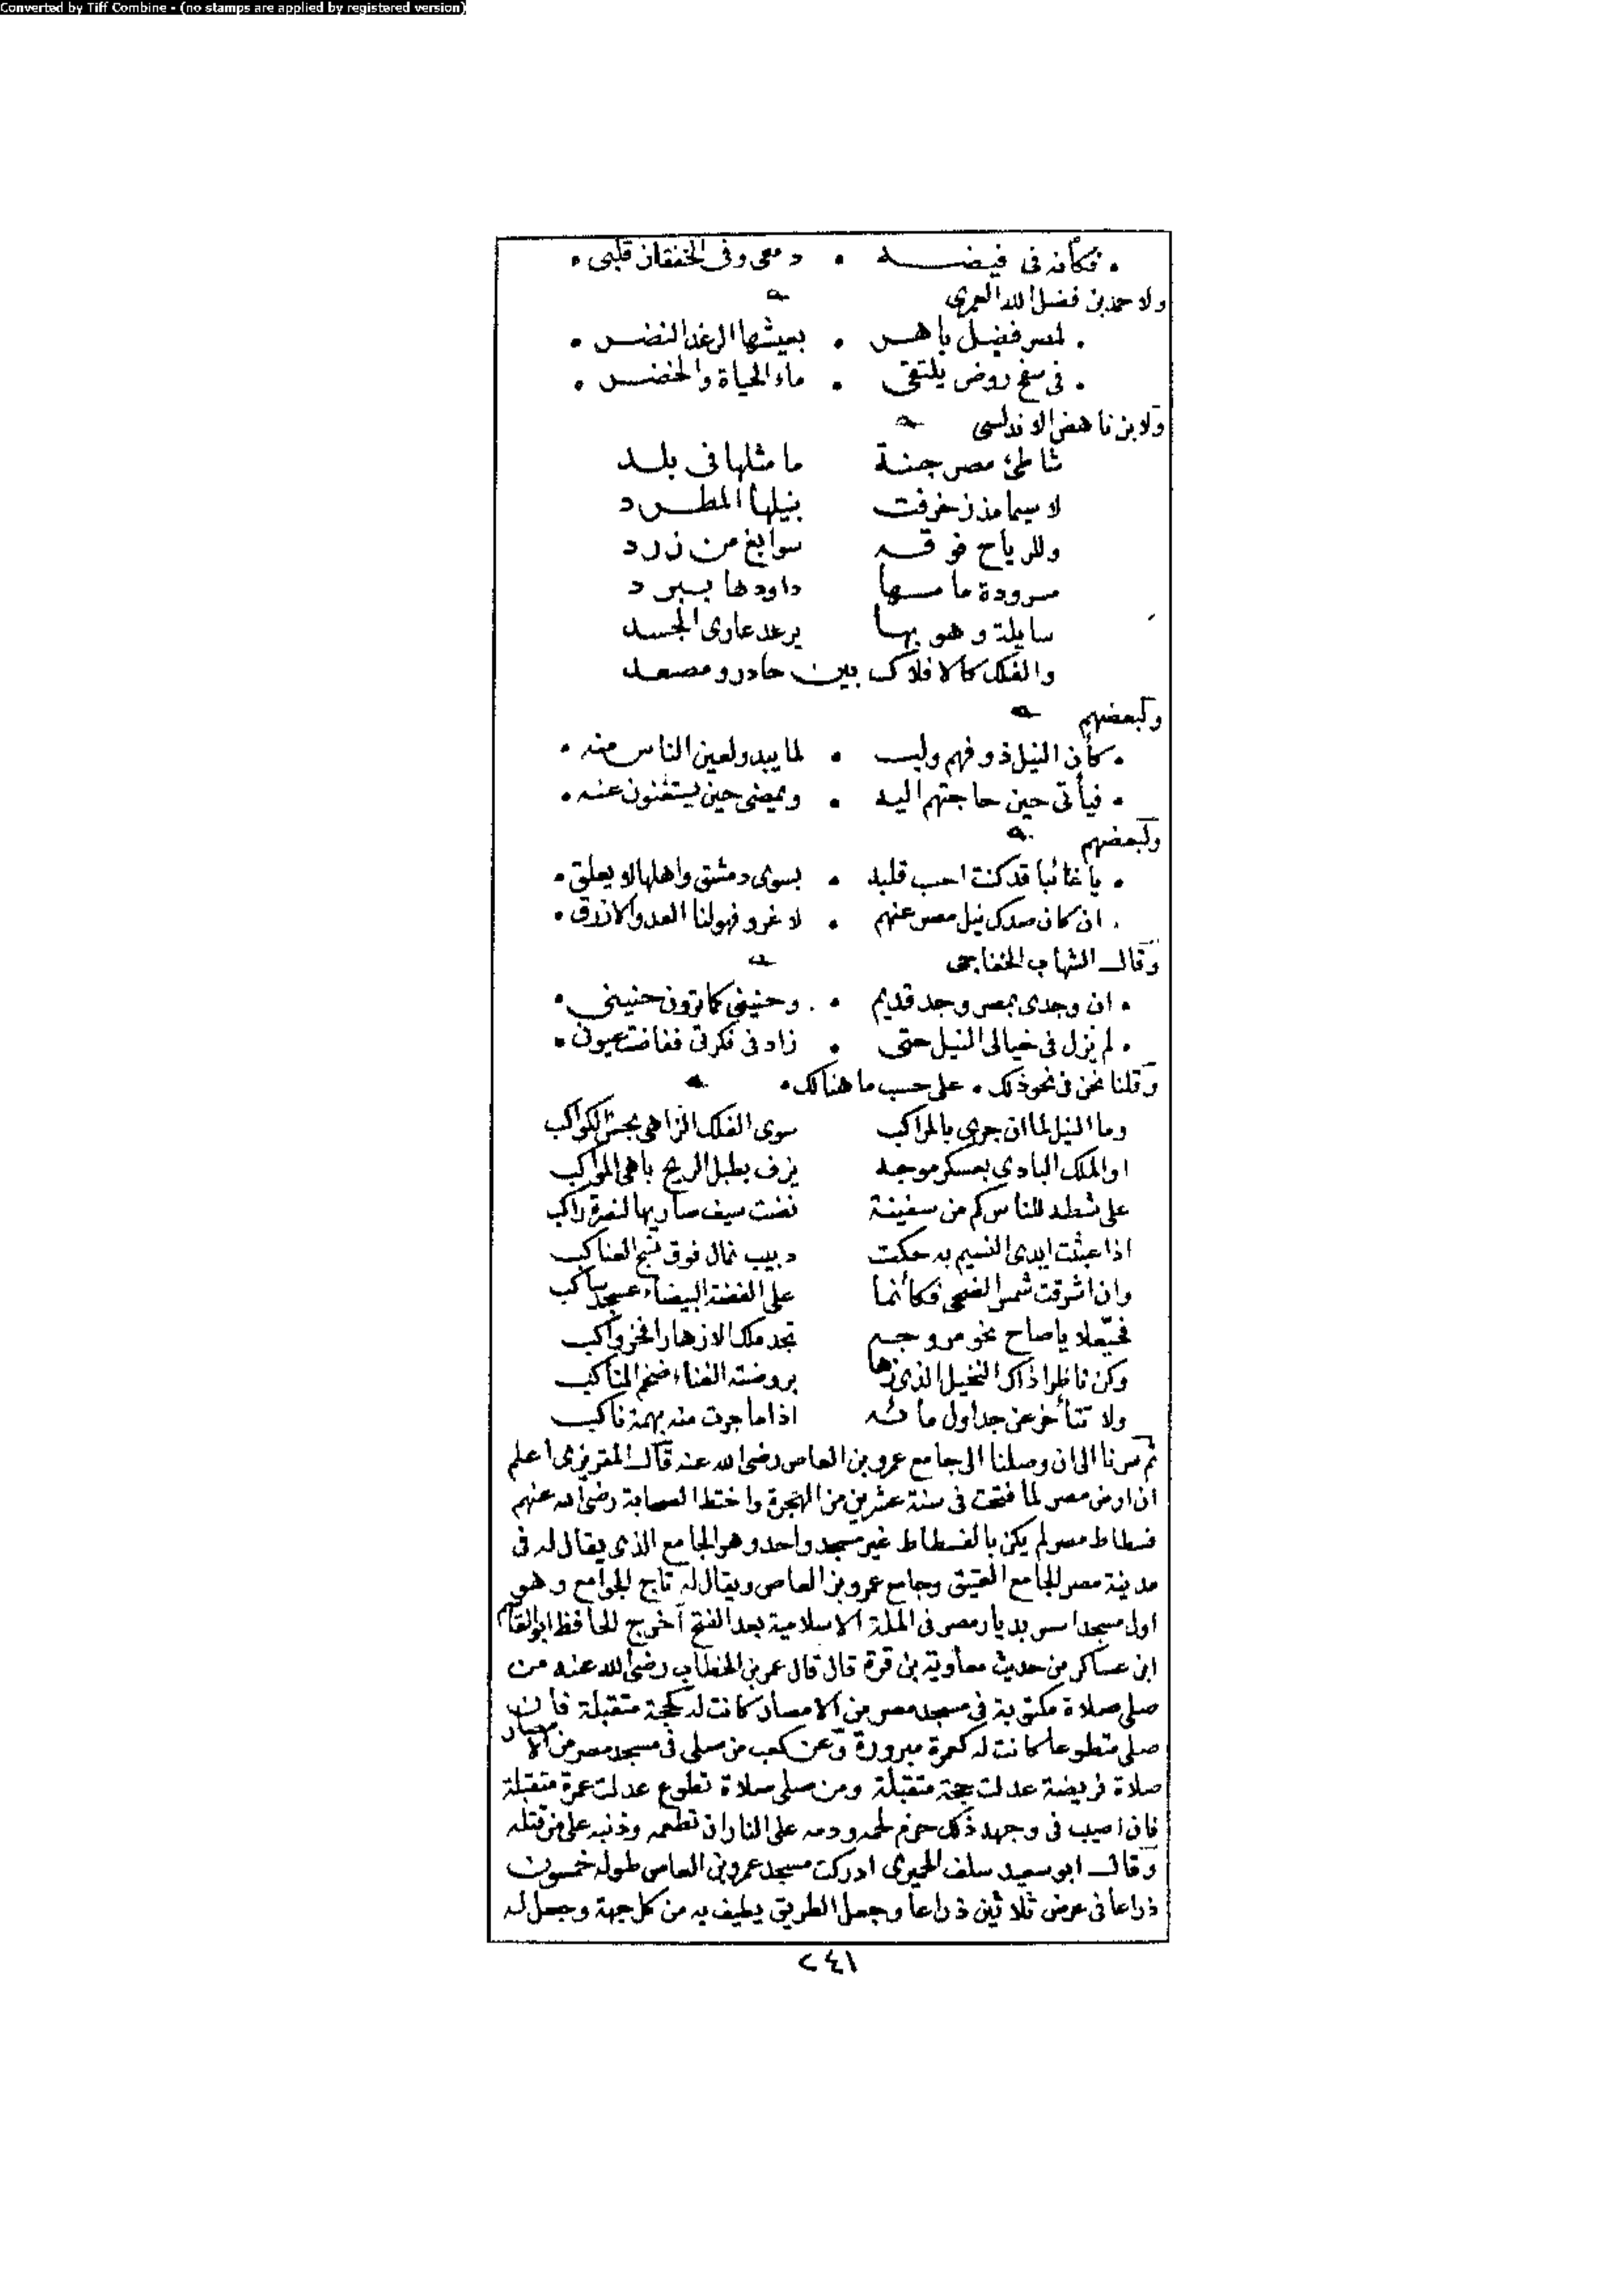 Converted by Tiff Combine - (no stamps are applied by registered version)
• فكأنه فى فيضه • دمعى وفى الخفقان قلبى •
ولاحمد بن فضل الله العمرى
• لمصر فضل باهر • بعيشها الرغد النضر •
• فى سفح روض يلتقى • ماء الحياة والخضر •
ولابن ناهض الاندلسى
شاطئ مصر جنة ما مثلها فى بلد
لا سيما مذ زخرفت بنيلها المطرد
وللرياح فوقه سوابغ من زرد
مسرودة ما مسها داودها بمبرد
سايلة وهو بها يرعد عارى الجسد
والفلك كالافلاك بين حادر ومصعد
ولبعضهم
• كأن النيل ذو فهم ولب • لما يبدو لعين الناس منه •
• فيأتى حين حاجتهم اليه • ويمضى حين يستغنون عنه •
ولبعضهم
• يا غائبا قد كنت احسب قلبه • بسوى دمشق واهلها لا يعلق •
• ان كان صدك نيل مصر عنهم • لا غرو فهو لنا العدو الازرق •
وقال الشهاب الخفاجى
• ان وجدى بمصر وجد قديم • وحنينى كما ترون حنينى •
• لم يزل فى خيالى النيل حتى • زاد فى فكرتى ففاضت عيونى •
وقلنا نحن فى نحو ذلك • على حسب ما هنالك •
وما النيل لما ان جرى بالمراكب سوى الفلك الزاهى بحسن الكواكب
او الملك البادى بعسكر موجه يزف بطبل الريح باهى المواكب
على شطه للناس كم من سفينة نضت سيف صاريها لنصرة راكب
اذا عبثت ايدى النسيم به حكت دبيب نمال فوق نسج العناكب
وان اشرقت شمس الضحى فكأنما على الفضة البيضاء عسجد ساكب
فحيّعلا يا صاح نحو مروجه تجد ملك الازهار افخر واكب
وكن ناظرا ذاك النخيل الذى زها بروضته الغناء ضخم المناكب
ولا تتأخر عن جداول مائه اذا ما جرت منه بهمة ناكب
ثم سرنا الى ان وصلنا الى جامع عمرو بن العاص رضى الله عنه قال المقريزى اعلم
ان ارض مصر لما فتحت فى سنة عشرين من الهجرة واختط الصحابة رضى الله عنهم
فسطاط مصر لم يكن بالفسطاط غير مسجد واحد وهو الجامع الذى يقال له فى
مدينة مصر الجامع العتيق وجامع عمرو بن العاص ويقال له تاج الجوامع وهو
اول مسجد اسس بديار مصر فى الملة الاسلامية بعد الفتح اخرج الحافظ ابو القاسم
ابن عساكر من حديث معاوية بن قرة قال قال عمر بن الخطاب رضى الله عنه من
صلى صلاة مكتوبة فى مسجد مصر من الامصار كانت له كحجة متقبلة فان
صلى متطوعا كانت له كعمرة مبرورة وعن كعب من صلى فى مسجد مصر من الامصار
صلاة فريضة عدلت حجة متقبلة ومن صلى صلاة تطوع عدلت عمرة متقبلة
فان اصيب فى وجهه ذلك حرم لحمه ودمه على النار ان تطعمه وذنبه على من قتله
وقال ابو سعيد سلف الحميرى ادركت مسجد عمرو بن العاص طوله خمسون
ذراعا فى عرض ثلاثين ذراعا وجعل الطريق يطيف به من كل جهة وجعل له
٢٤١